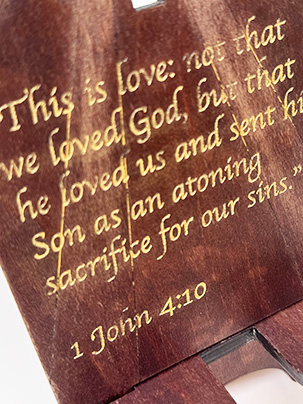 This is love: not that
we loved God, but that
he loved us and sent hi
Son as an atoning
sacrifice for our sins.”
1 John 4:10